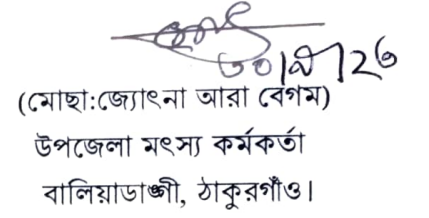 ৩০|৯|২৩
(মোছা:জ্যোৎনা আরা বেগম)
উপজেলা মৎস্য কর্মকর্তা
বালিয়াডাঙ্গী, ঠাকুরগাঁও।